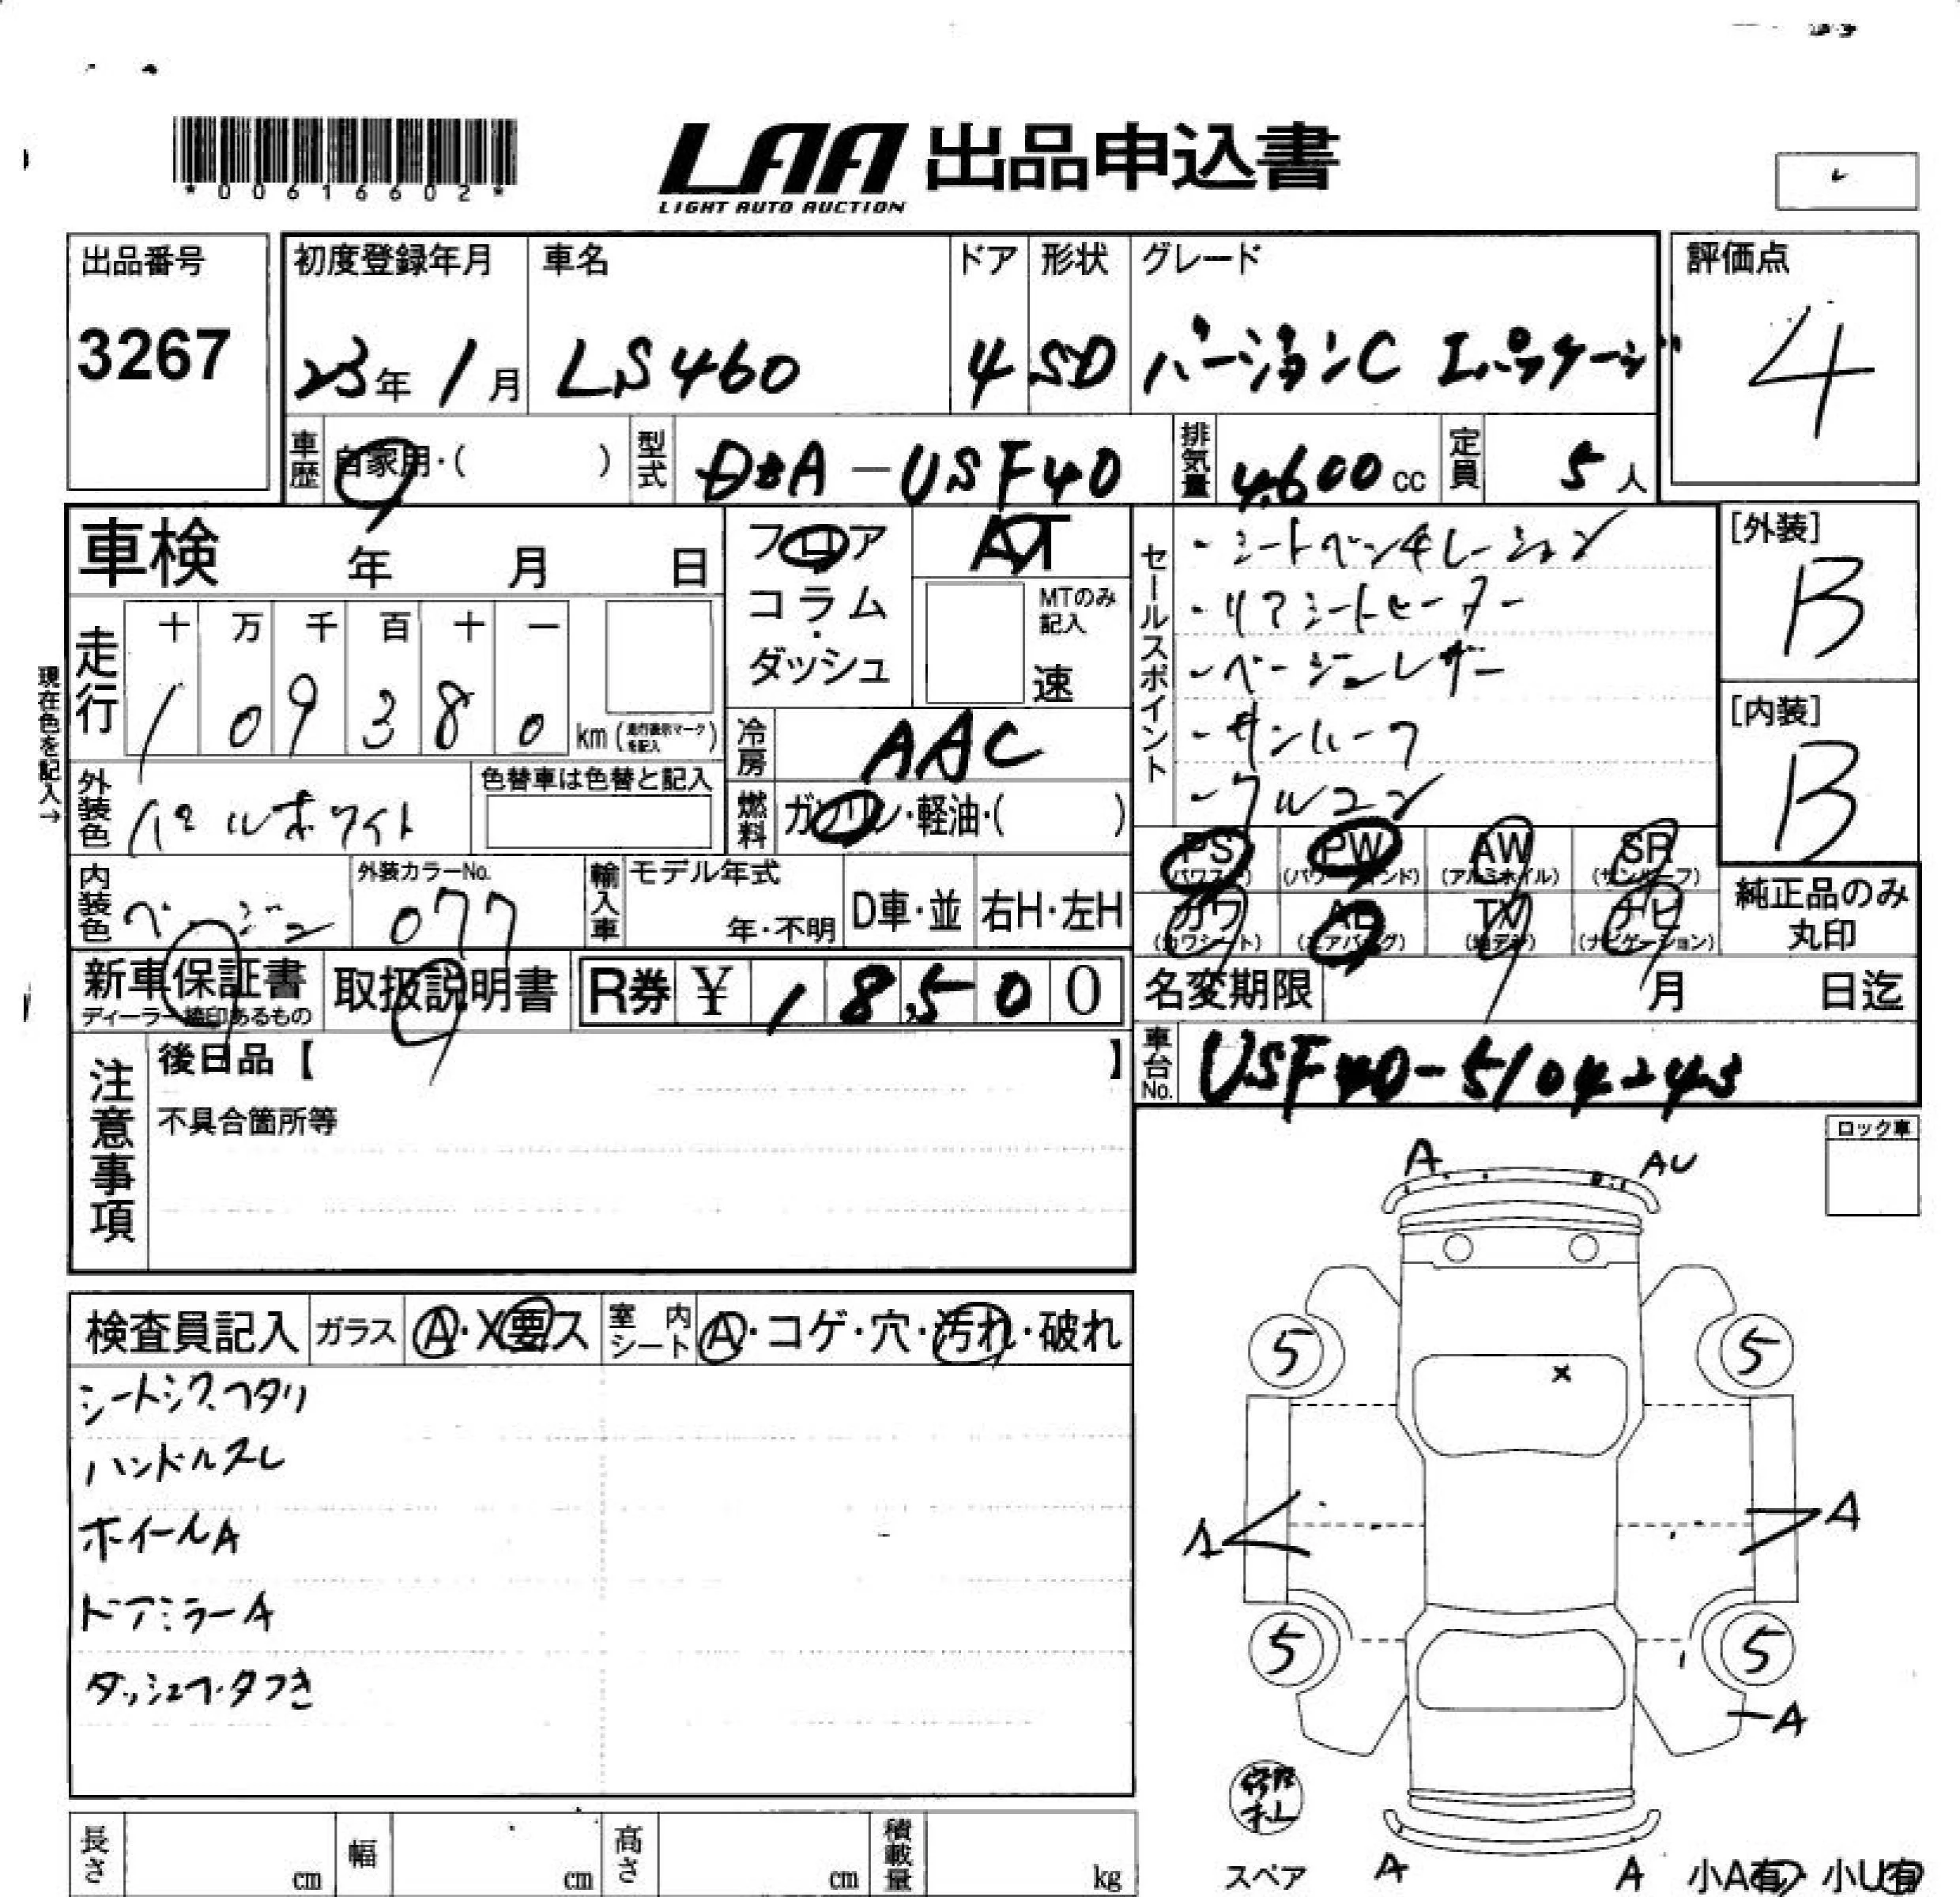 *00616602*
LAA 出品申込書
LIGHT AUTO AUCTION
出品番号
3267
初度登録年月
23年 1月
車名
LS460
ドア
4
形状
SD
グレード
バージョンC Iパッケージ
評価点
4
車歴
自家用・( )
型式
DBA-USF40
排気量
4,600 cc
定員
5 人
車検 年 月 日
フロア
コラム
・
ダッシュ
AT
MTのみ記入
速
セールスポイント
・シートベンチレーション
・リアシートヒーター
・ベージュレザー
・サンルーフ
・フルコン
[外装]
B
[内装]
B
現在色を記入→
走行
十 万 千 百 十 一
1 0 9 3 8 0 km (走行表示マークを記入)
冷房
AAC
外装色
パールホワイト
色替車は色替と記入
燃料
ガソリン・軽油・( )
内装色
ベージュ
外装カラーNo.
077
輸入車
モデル年式
年・不明
D車・並
右H・左H
PS (パワステ)
PW (パワーウインド)
AW (アルミホイル)
SR (サンルーフ)
カワ (カワシート)
AB (エアバッグ)
TV (地デジ)
ナビ (ナビゲーション)
純正品のみ
丸印
新車保証書
ディーラー捺印あるもの
取扱説明書
R券 ¥ 1 8,5 0 0
名変期限 月 日迄
車台No.
USF40-5104243
注意事項
後日品【 】
不具合箇所等
ロック車
A
AU
検査員記入
ガラス
A・X要ス
室内シート
A・コゲ・穴・汚れ・破れ
シートシワ、ヘタリ
ハンドルスレ
ホイールA
ドアミラーA
5
5
×
A
A
5
5
A
スペア
A
A
小A有 小U有
長さ cm
幅 cm
高さ cm
積載量 kg